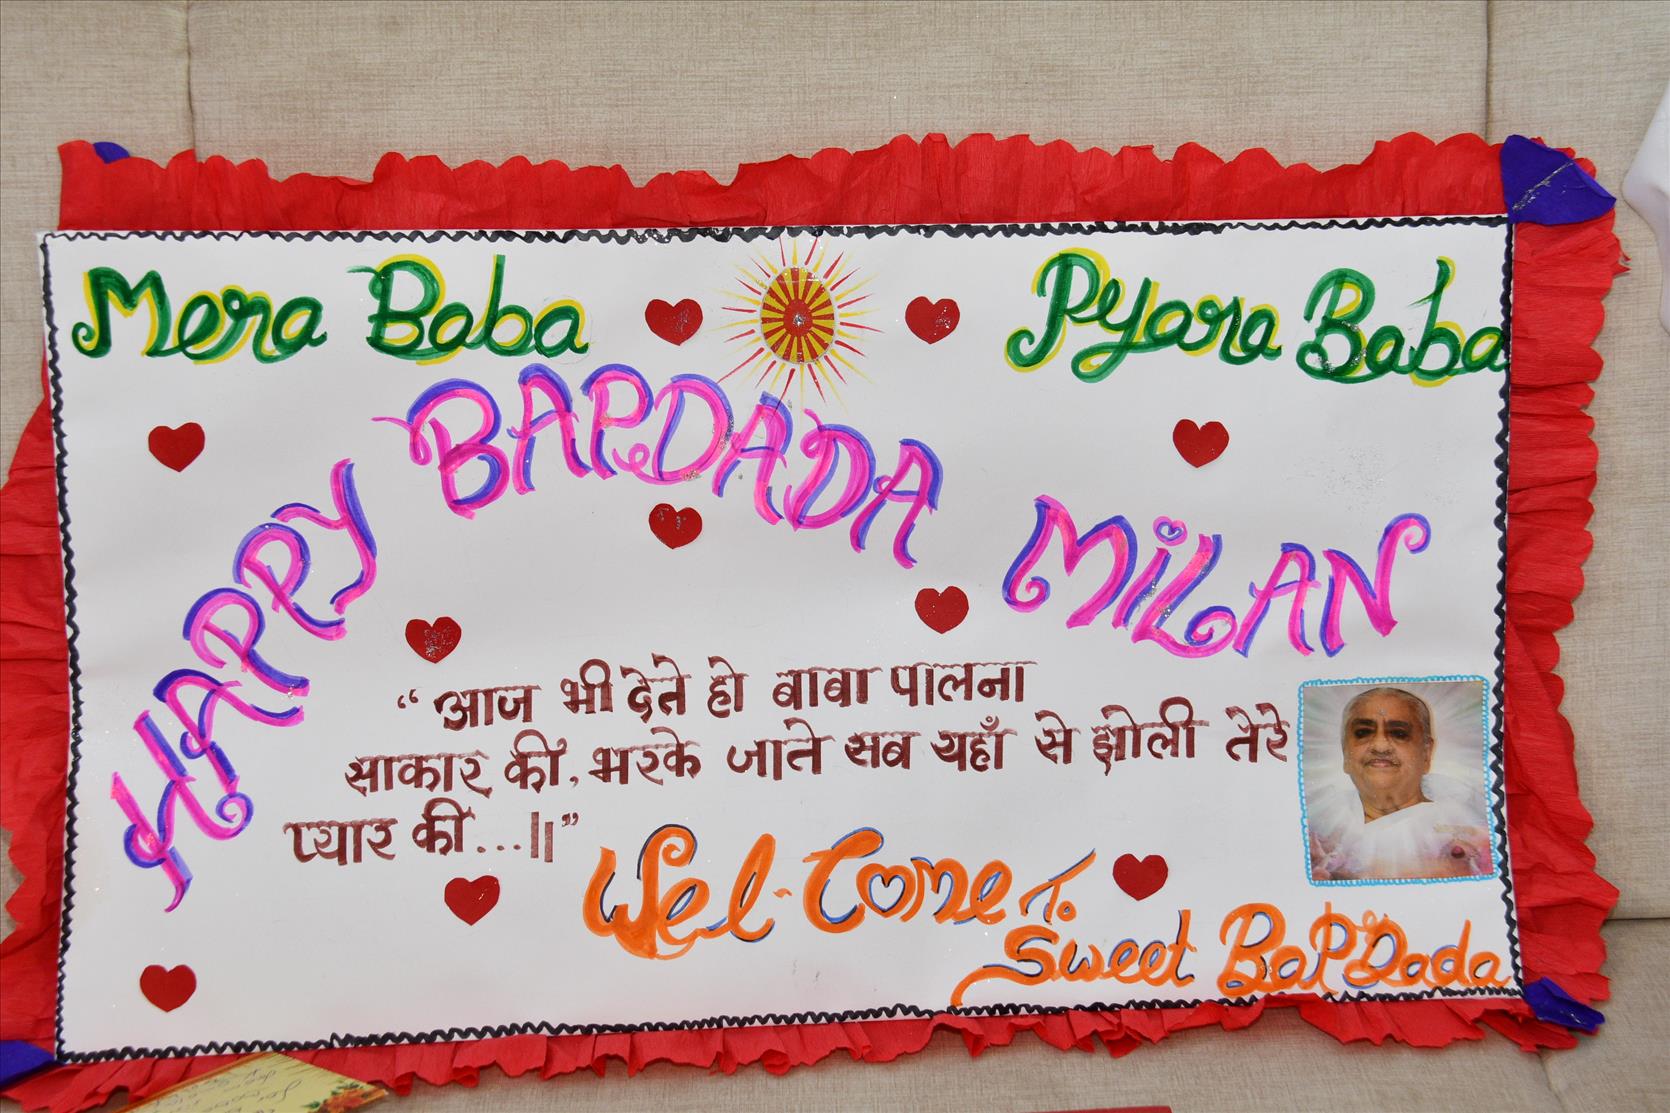 Mera Baba Pyara Baba
HAPPY BAPDADA MiLAN
“आज भी देते हो बाबा पालना
साकार की, भरके जाते सब यहाँ से झोली तेरे
प्यार की...॥”
Wel-Come To
Sweet BaPDada